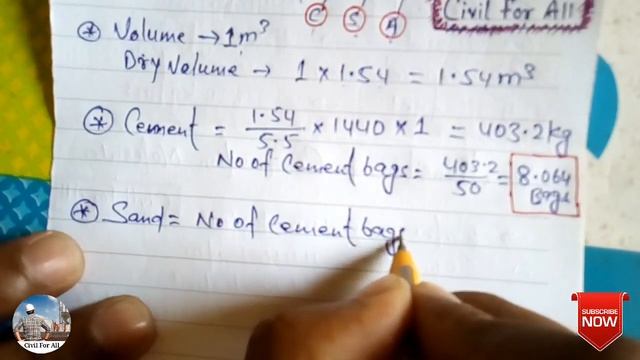 Civil for All
C S A
* Volume → 1m³
Dry Volume → 1 × 1.54 = 1.54m³
* Cement = 1.54/5.5 × 1440 × 1 = 403.2kg
No of Cement bags = 403.2/50 = 8.064 Bags
* Sand = No of Cement bags
Civil For All
SUBSCRIBE
NOW